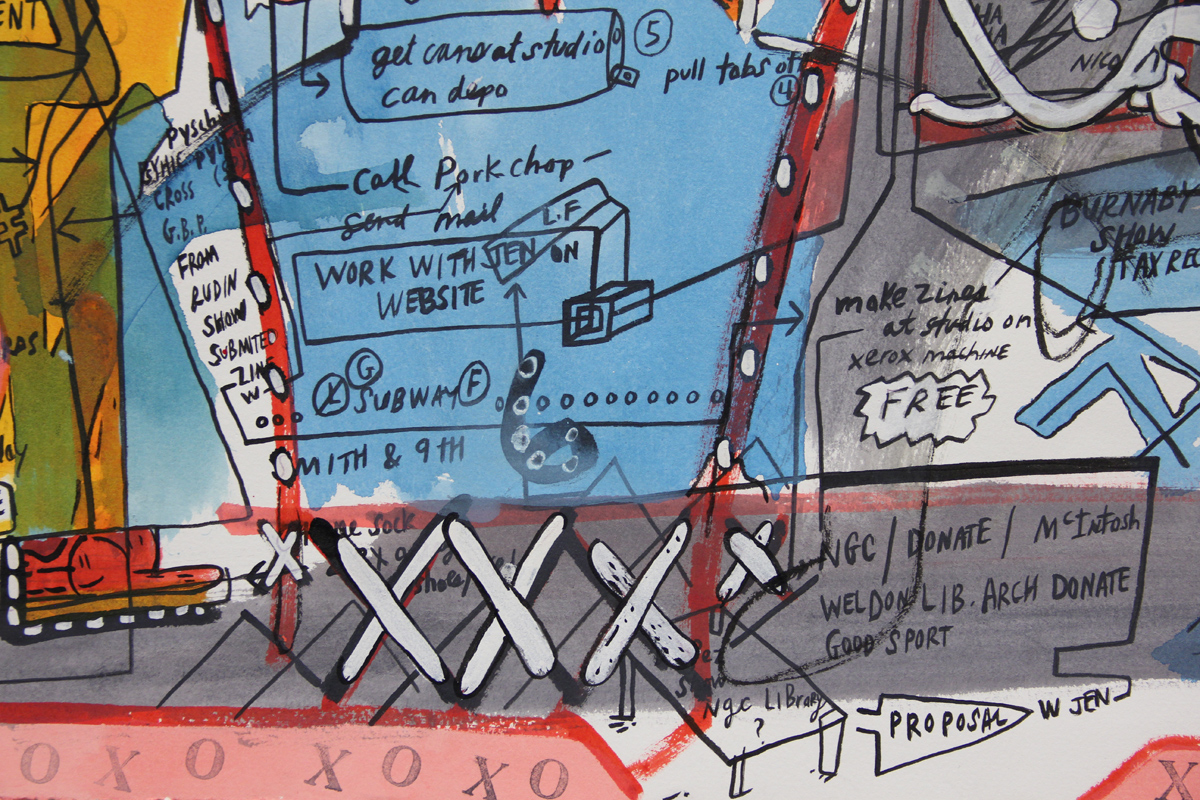 ENT
get cans at studio
can depo
5
pull tabs off
4
call Porkchop
send mail
L.F
WORK WITH JEN ON
WEBSITE
X G SUBWAY F
MITH & 9TH
CROSS
G.B.P.
FROM
RUDIN
SHOW
SUBMITED
ZINE
W
HA
HA
NICO
BURNABY
SHOW
TAX REC
make zines
at studio on
xerox machine
FREE
sock
NGC / DONATE / McIntosh
WELDON LIB. ARCH DONATE
GOOD SPORT
Ngc LIBrary
?
PROPOSAL W JEN
O X O X O X O
X